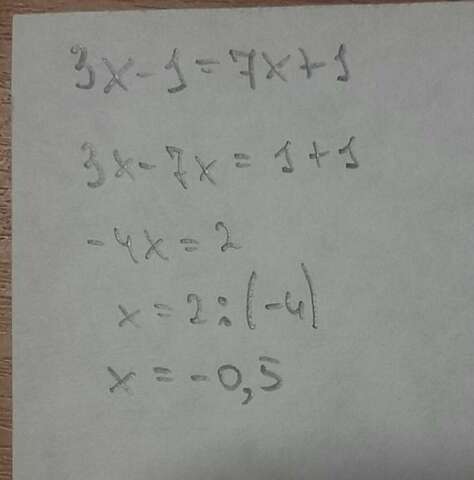 3x-1=7x+1
3x-7x=1+1
-4x=2
x=2:(-4)
x=-0,5